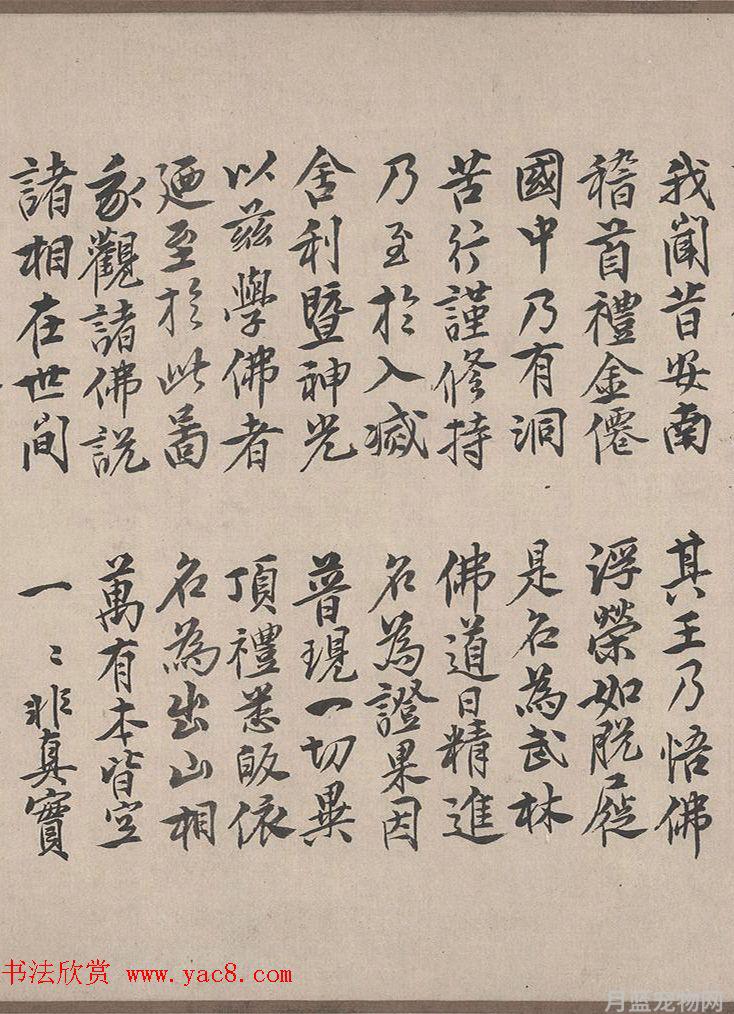 我聞昔安南 其王乃悟佛
稽首禮金僊 浮榮如脫屣
國中乃有洞 是名為武林
苦行謹修持 佛道日精進
乃至於入滅 名為證果因
舍利暨神光 普現一切異
以茲學佛者 頂禮悉皈依
廼至於此啚 名為出山相
我觀諸佛說 萬有本皆空
諸相在世間 一〻非真實
书法欣赏 www.yac8.com
月蓝宠物网